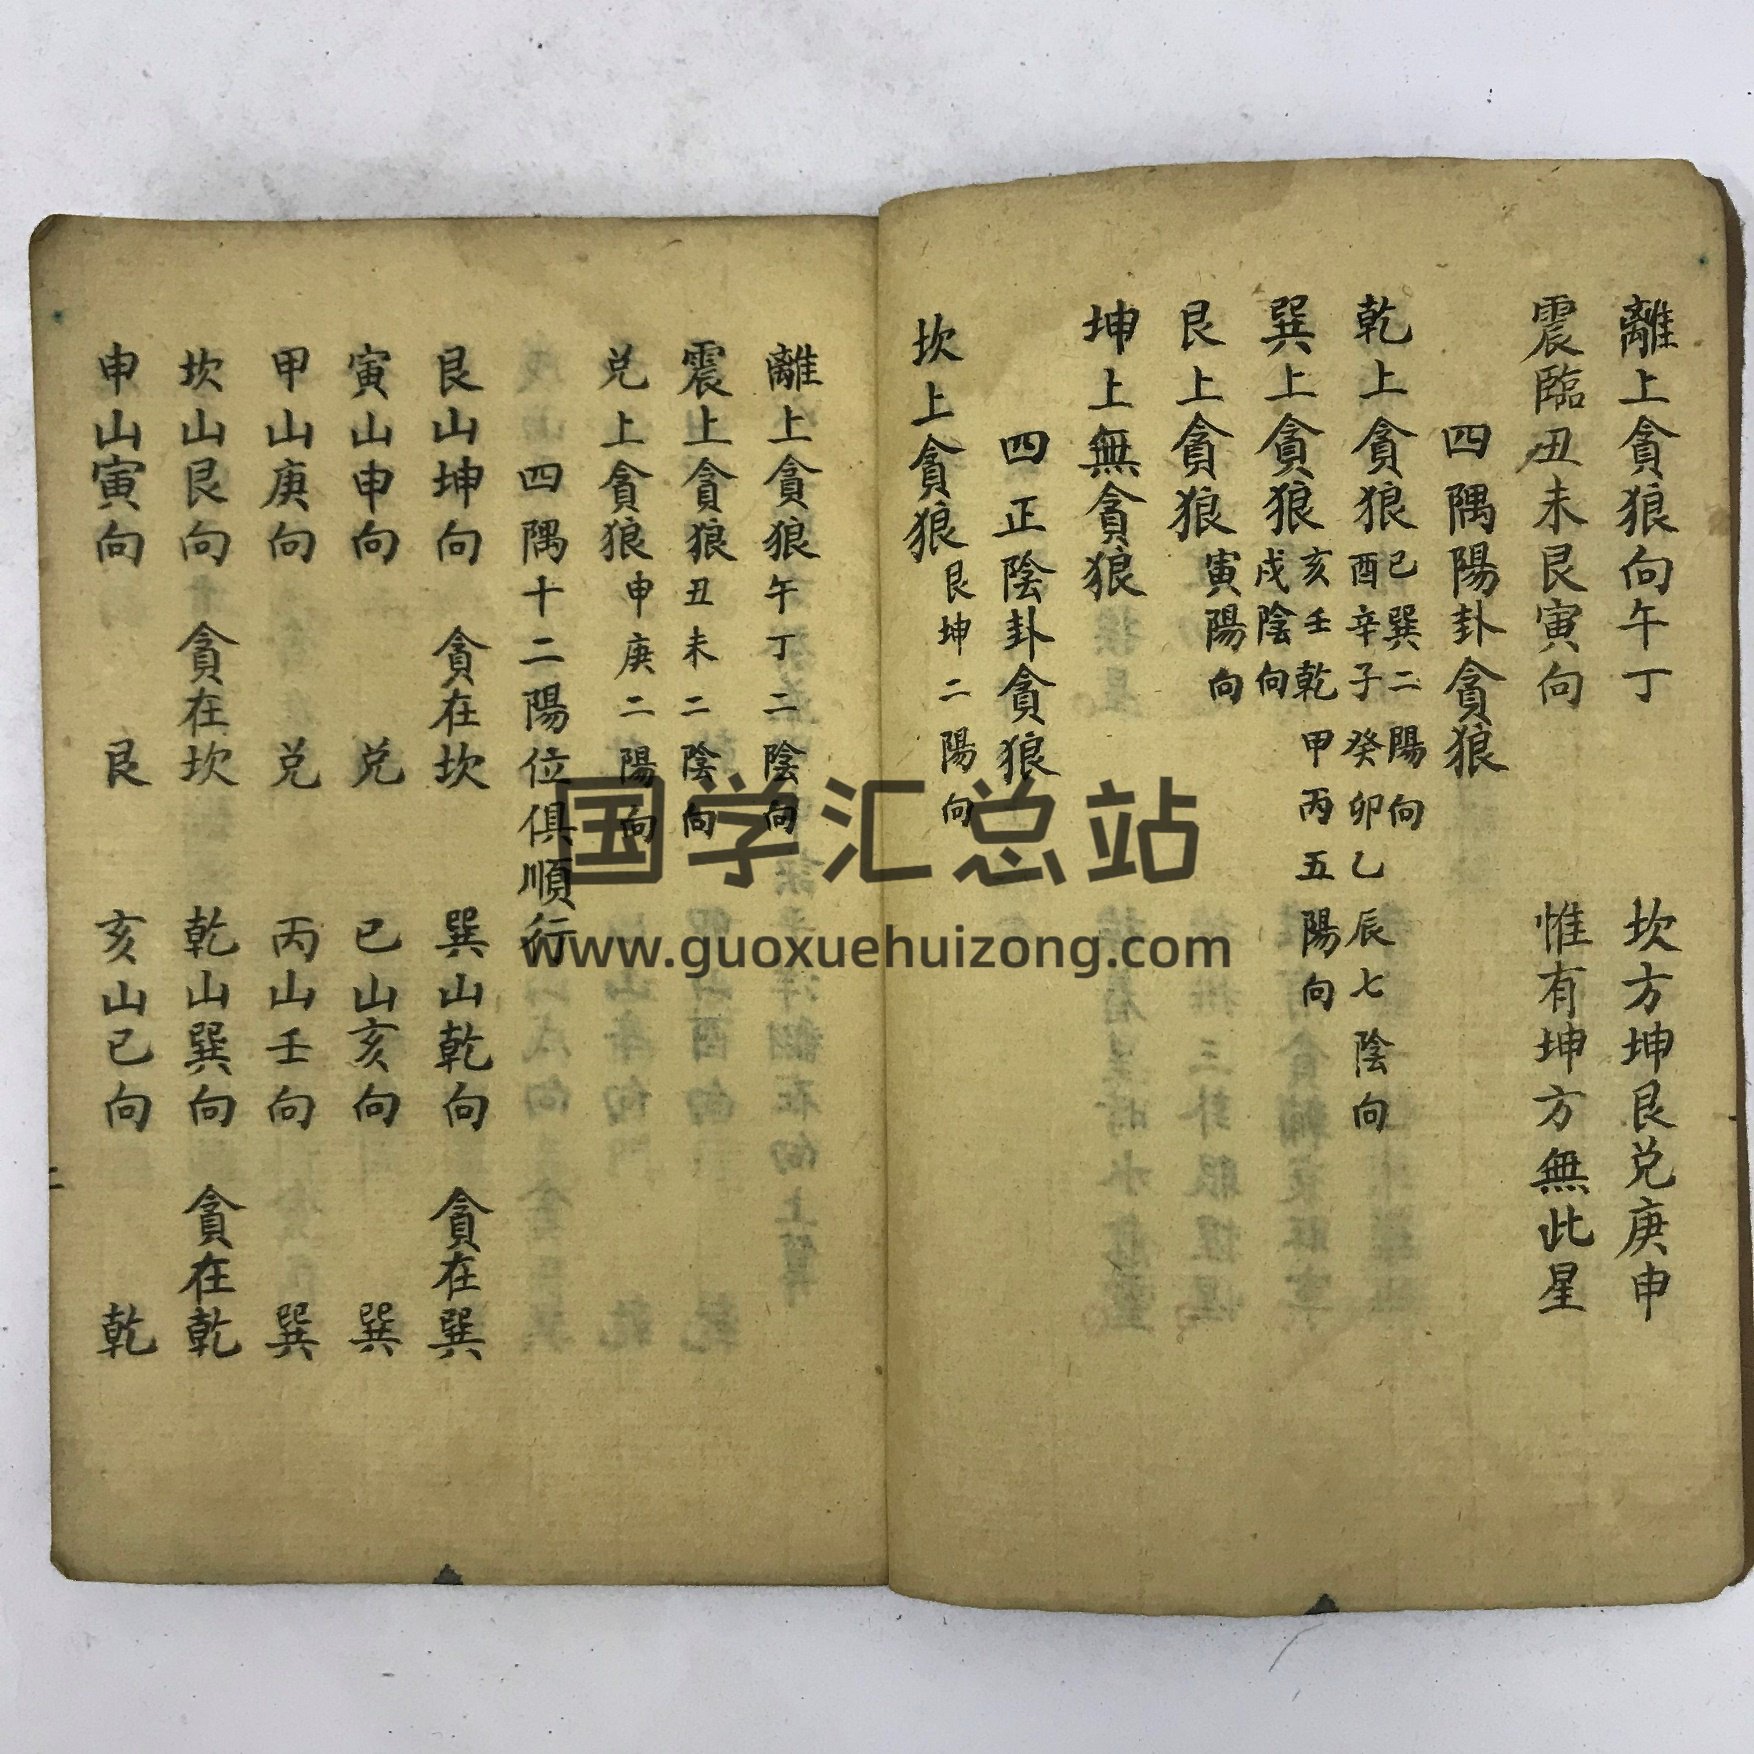 離上貪狼向午丁　坎方坤艮兌庚申
震臨丑未艮寅向　惟有坤方無此星
四隅陽卦貪狼
乾上貪狼
巳巽二陽向
酉辛子癸卯乙辰七陰向
巽上貪狼
亥壬乾甲丙五陽向
戌陰向
艮上貪狼
寅陽向
坤上無貪狼
四正陰卦貪狼
坎上貪狼
艮坤二陽向
離上貪狼
午丁二陰向
震上貪狼
丑未二陰向
兌上貪狼
申庚二陽向
四隅十二陽位俱順行
艮山坤向　貪在坎　巽山乾向　貪在巽
寅山申向　兌　巳山亥向　巽
甲山庚向　兌　丙山壬向　巽
坎山艮向　貪在坎　乾山巽向　貪在乾
申山寅向　艮　亥山巳向　乾
二
国学汇总站
www.guoxuehuizong.com